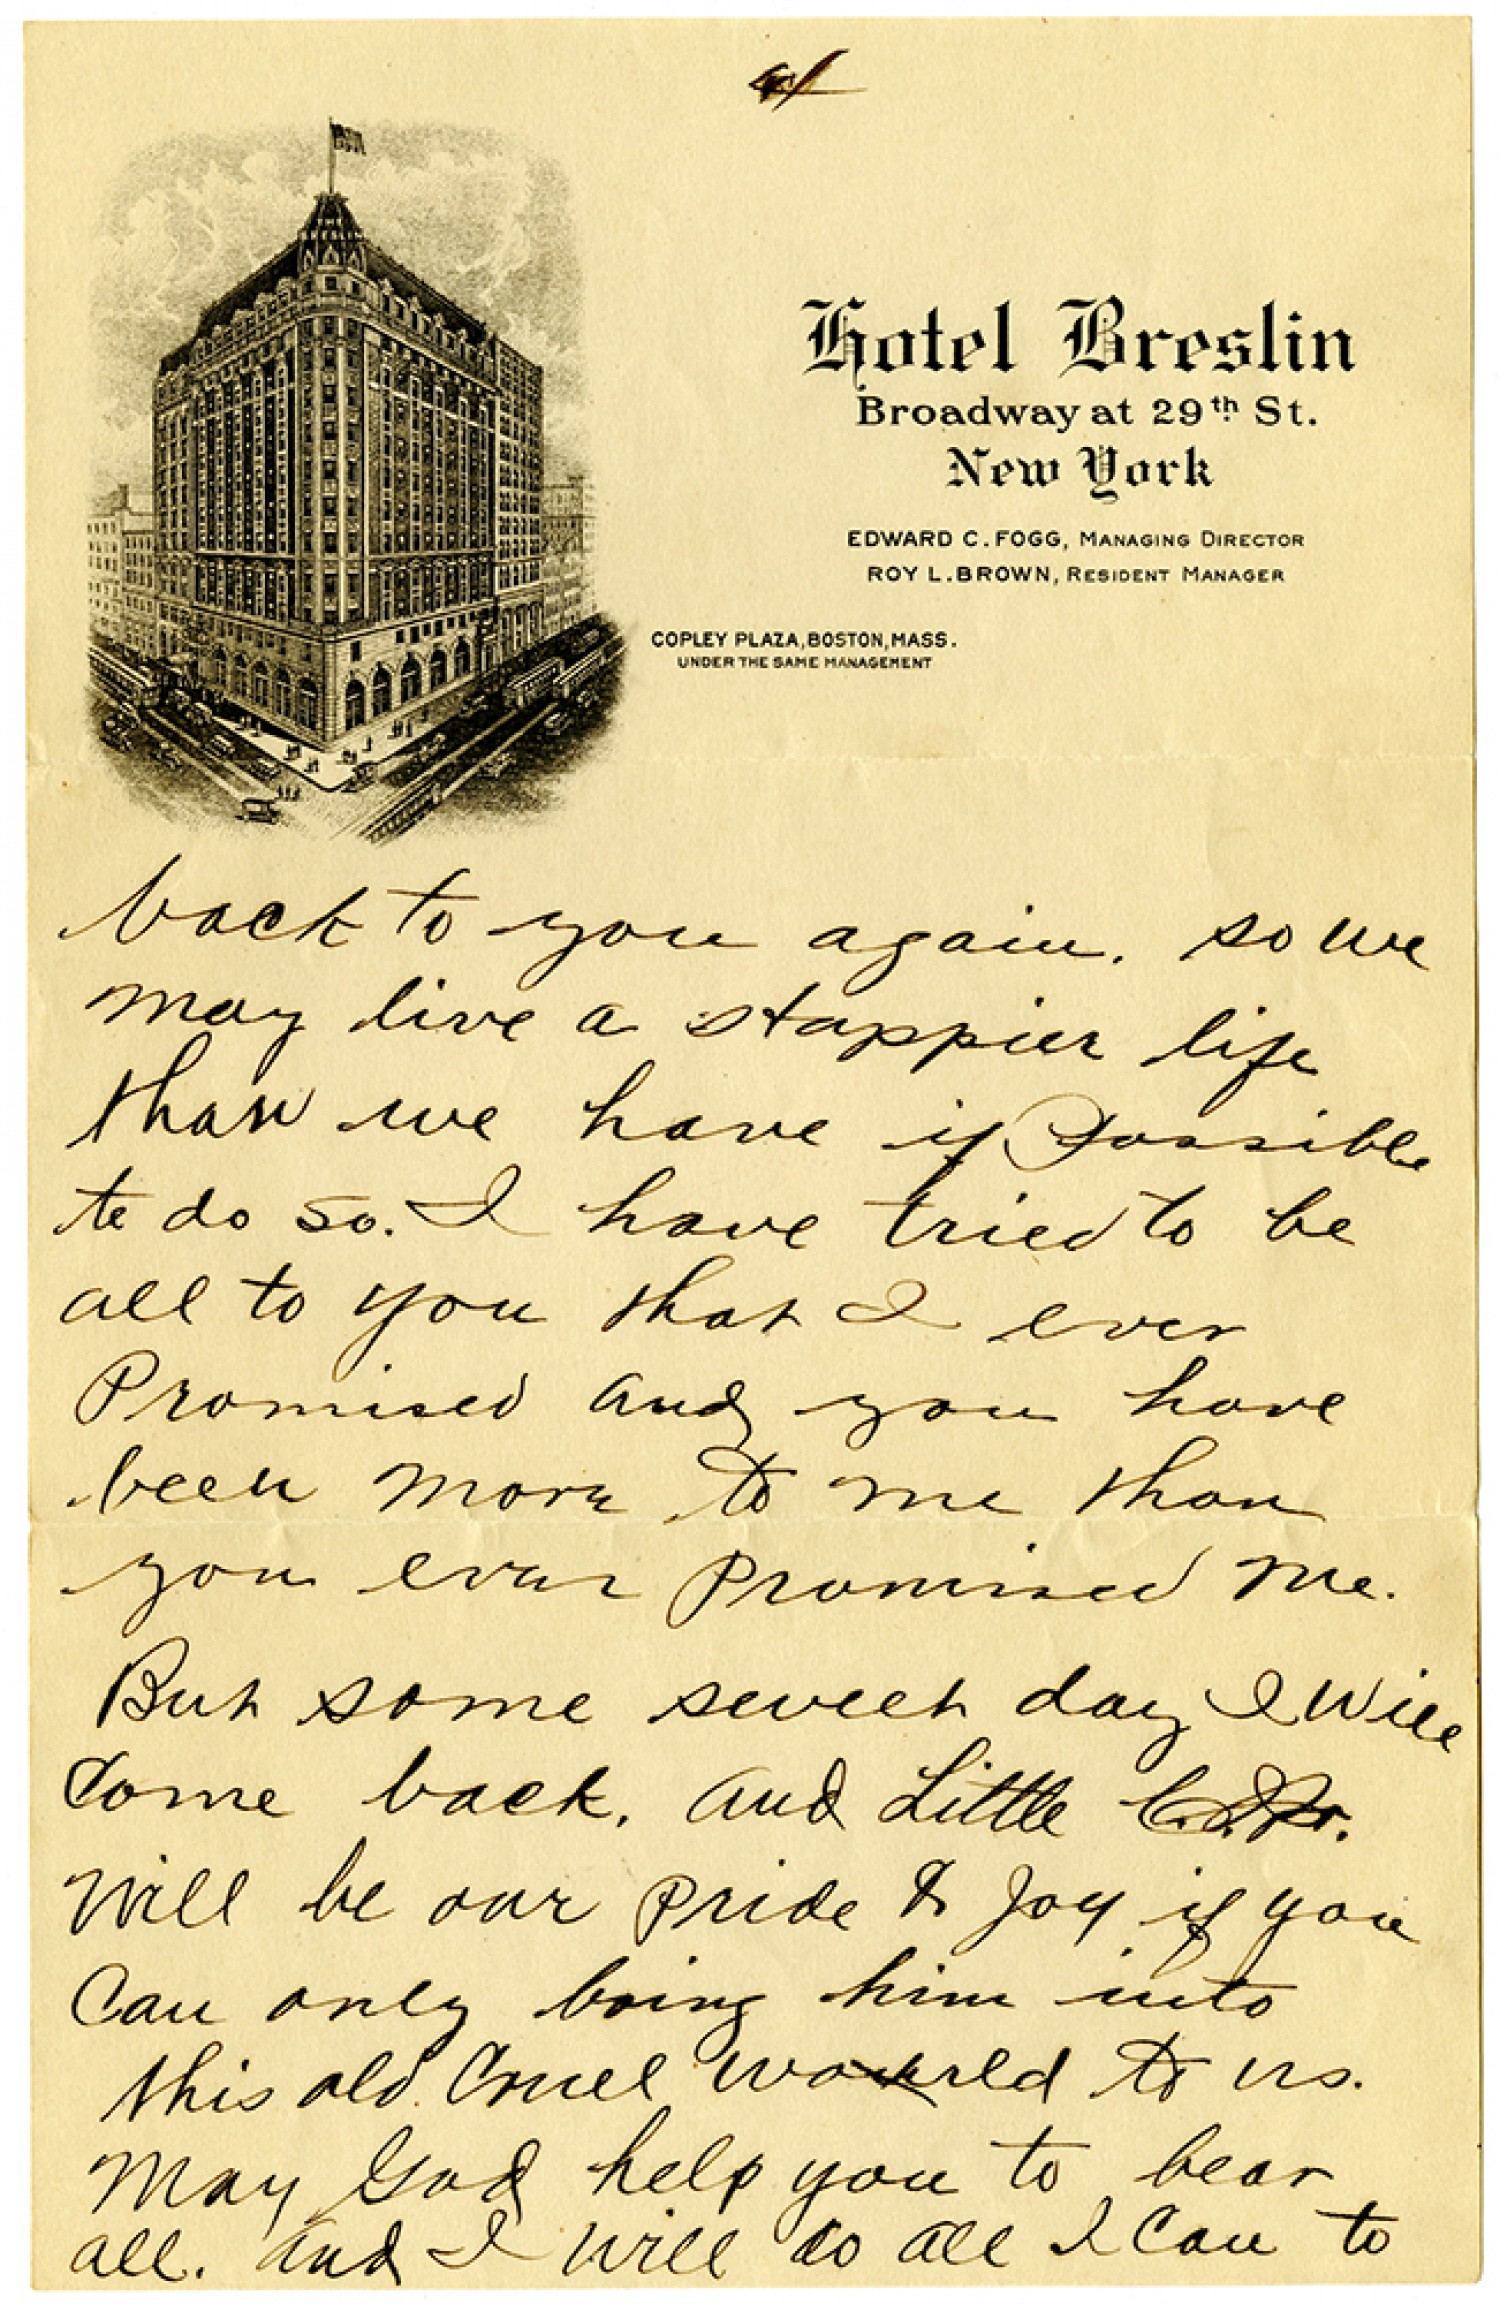 4/
Hotel Breslin
Broadway at 29th St.
New York
EDWARD C. FOGG, MANAGING DIRECTOR
ROY L. BROWN, RESIDENT MANAGER
COPLEY PLAZA, BOSTON, MASS.
UNDER THE SAME MANAGEMENT
back to you again. so we
may live a Happier life
than we have if Possible
to do so. I have tried to be
all to you that I ever
Promised and you have
been more to me than
you ever promised me.
But some sweet day I will
Come back. and Little Jr.
will be our pride & Joy if you
Can only bring him into
this old Cruel world to us.
May God help you to bear
all. and I will do all I Can to